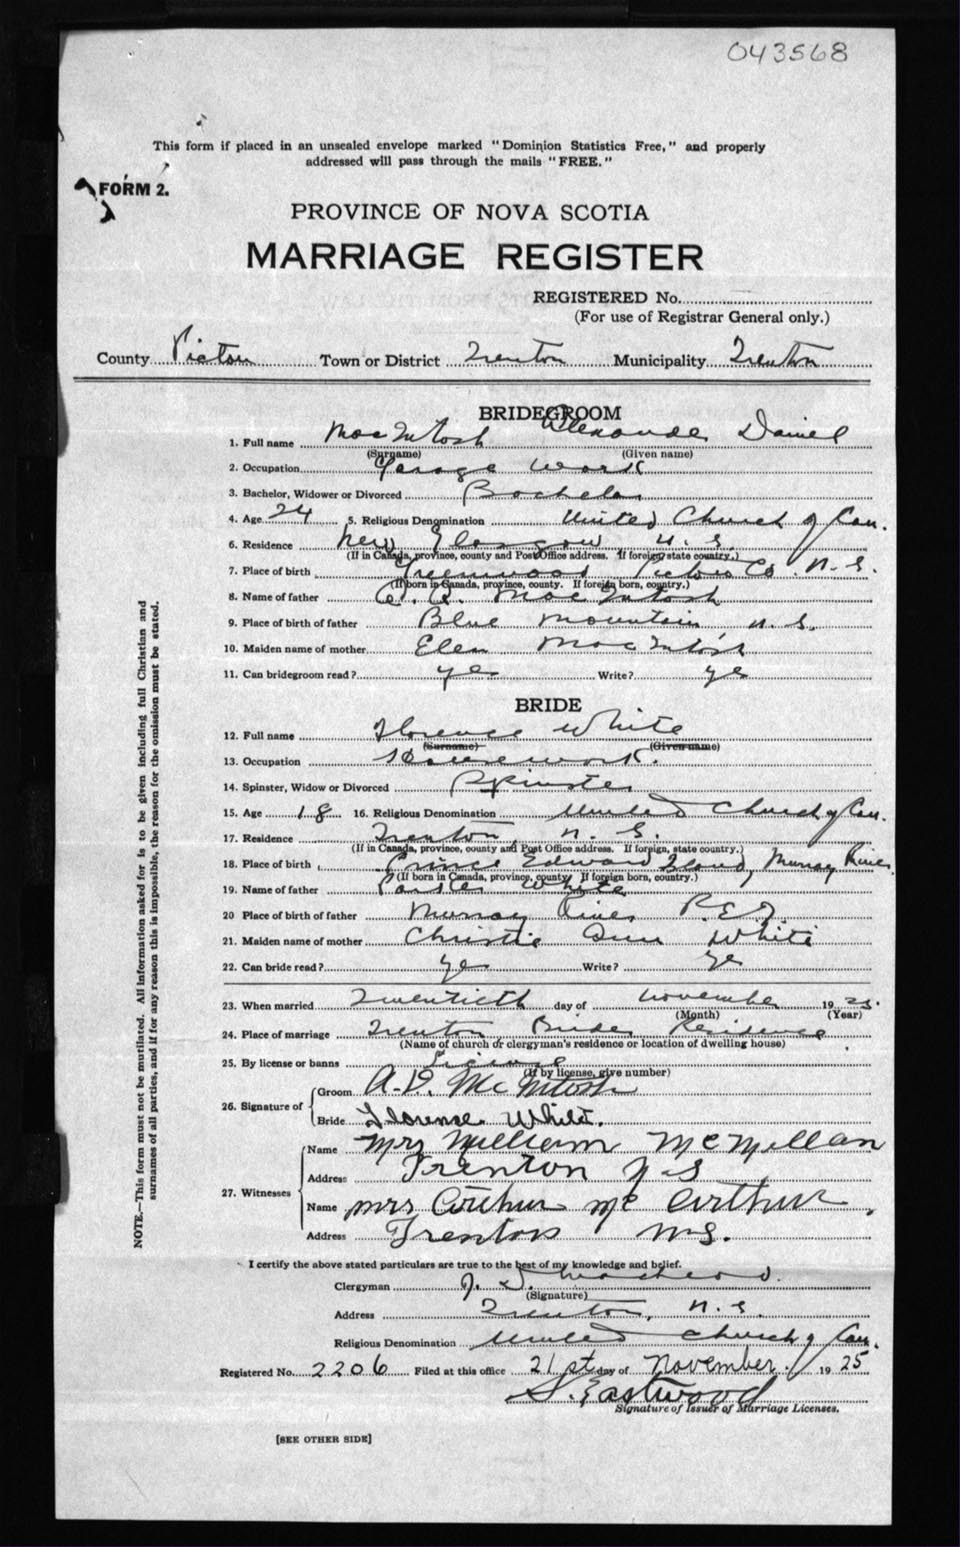 043568
This form if placed in an unsealed envelope marked "Dominion Statistics Free," and properly
addressed will pass through the mails "FREE."
FORM 2.
PROVINCE OF NOVA SCOTIA
MARRIAGE REGISTER
REGISTERED No.
(For use of Registrar General only.)
County Pictou Town or District Trenton Municipality Trenton
BRIDEGROOM
1. Full name MacIntosh Alexander Daniel
(Surname) (Given name)
2. Occupation Garage Work
3. Bachelor, Widower or Divorced Bachelor
4. Age 24 5. Religious Denomination United Church of Can.
6. Residence New Glasgow N.S.
(If in Canada, province, county and Post Office address. If foreign state country.)
7. Place of birth Greenwood Pictou Co. N.S.
(If born in Canada, province, county. If foreign born, country.)
8. Name of father MacIntosh
9. Place of birth of father Blue Mountain N.S.
10. Maiden name of mother Elen MacIntosh
11. Can bridegroom read? yes Write? yes
BRIDE
12. Full name Florence White
(Surname) (Given name)
13. Occupation Housework.
14. Spinster, Widow or Divorced Spinster
15. Age 18 16. Religious Denomination United Church of Can.
17. Residence Trenton, N.S.
(If in Canada, province, county and Post Office address. If foreign, state country.)
18. Place of birth Prince Edward Island, Murray River
(If born in Canada, province, county. If foreign born, country.)
19. Name of father White
20 Place of birth of father Murray River P.E.I.
21. Maiden name of mother Christie Ann White
22. Can bride read? yes Write? yes
23. When married Twentieth day of November 1925.
(Month) (Year)
24. Place of marriage Trenton Brides Residence
(Name of church or clergyman's residence or location of dwelling house)
25. By license or banns License
(If by license, give number)
26. Signature of Groom A.D. McIntosh
Bride Florence White.
27. Witnesses Name Mrs William McMillan
Address Trenton N S
Name Mrs Arthur Mc Arthur.
Address Trenton N.S.
I certify the above stated particulars are true to the best of my knowledge and belief.
Clergyman
(Signature)
Address Trenton, N.S.
Religious Denomination United Church of Can.
Registered No. 2206 Filed at this office 21st day of November 1925
S. Eastwood
Signature of Issuer of Marriage Licenses.
[SEE OTHER SIDE]
NOTE.—This form must not be mutilated. All information asked for is to be given including full Christian and
surnames of all parties, and if for any reason this is impossible, the reason for the omission must be stated.